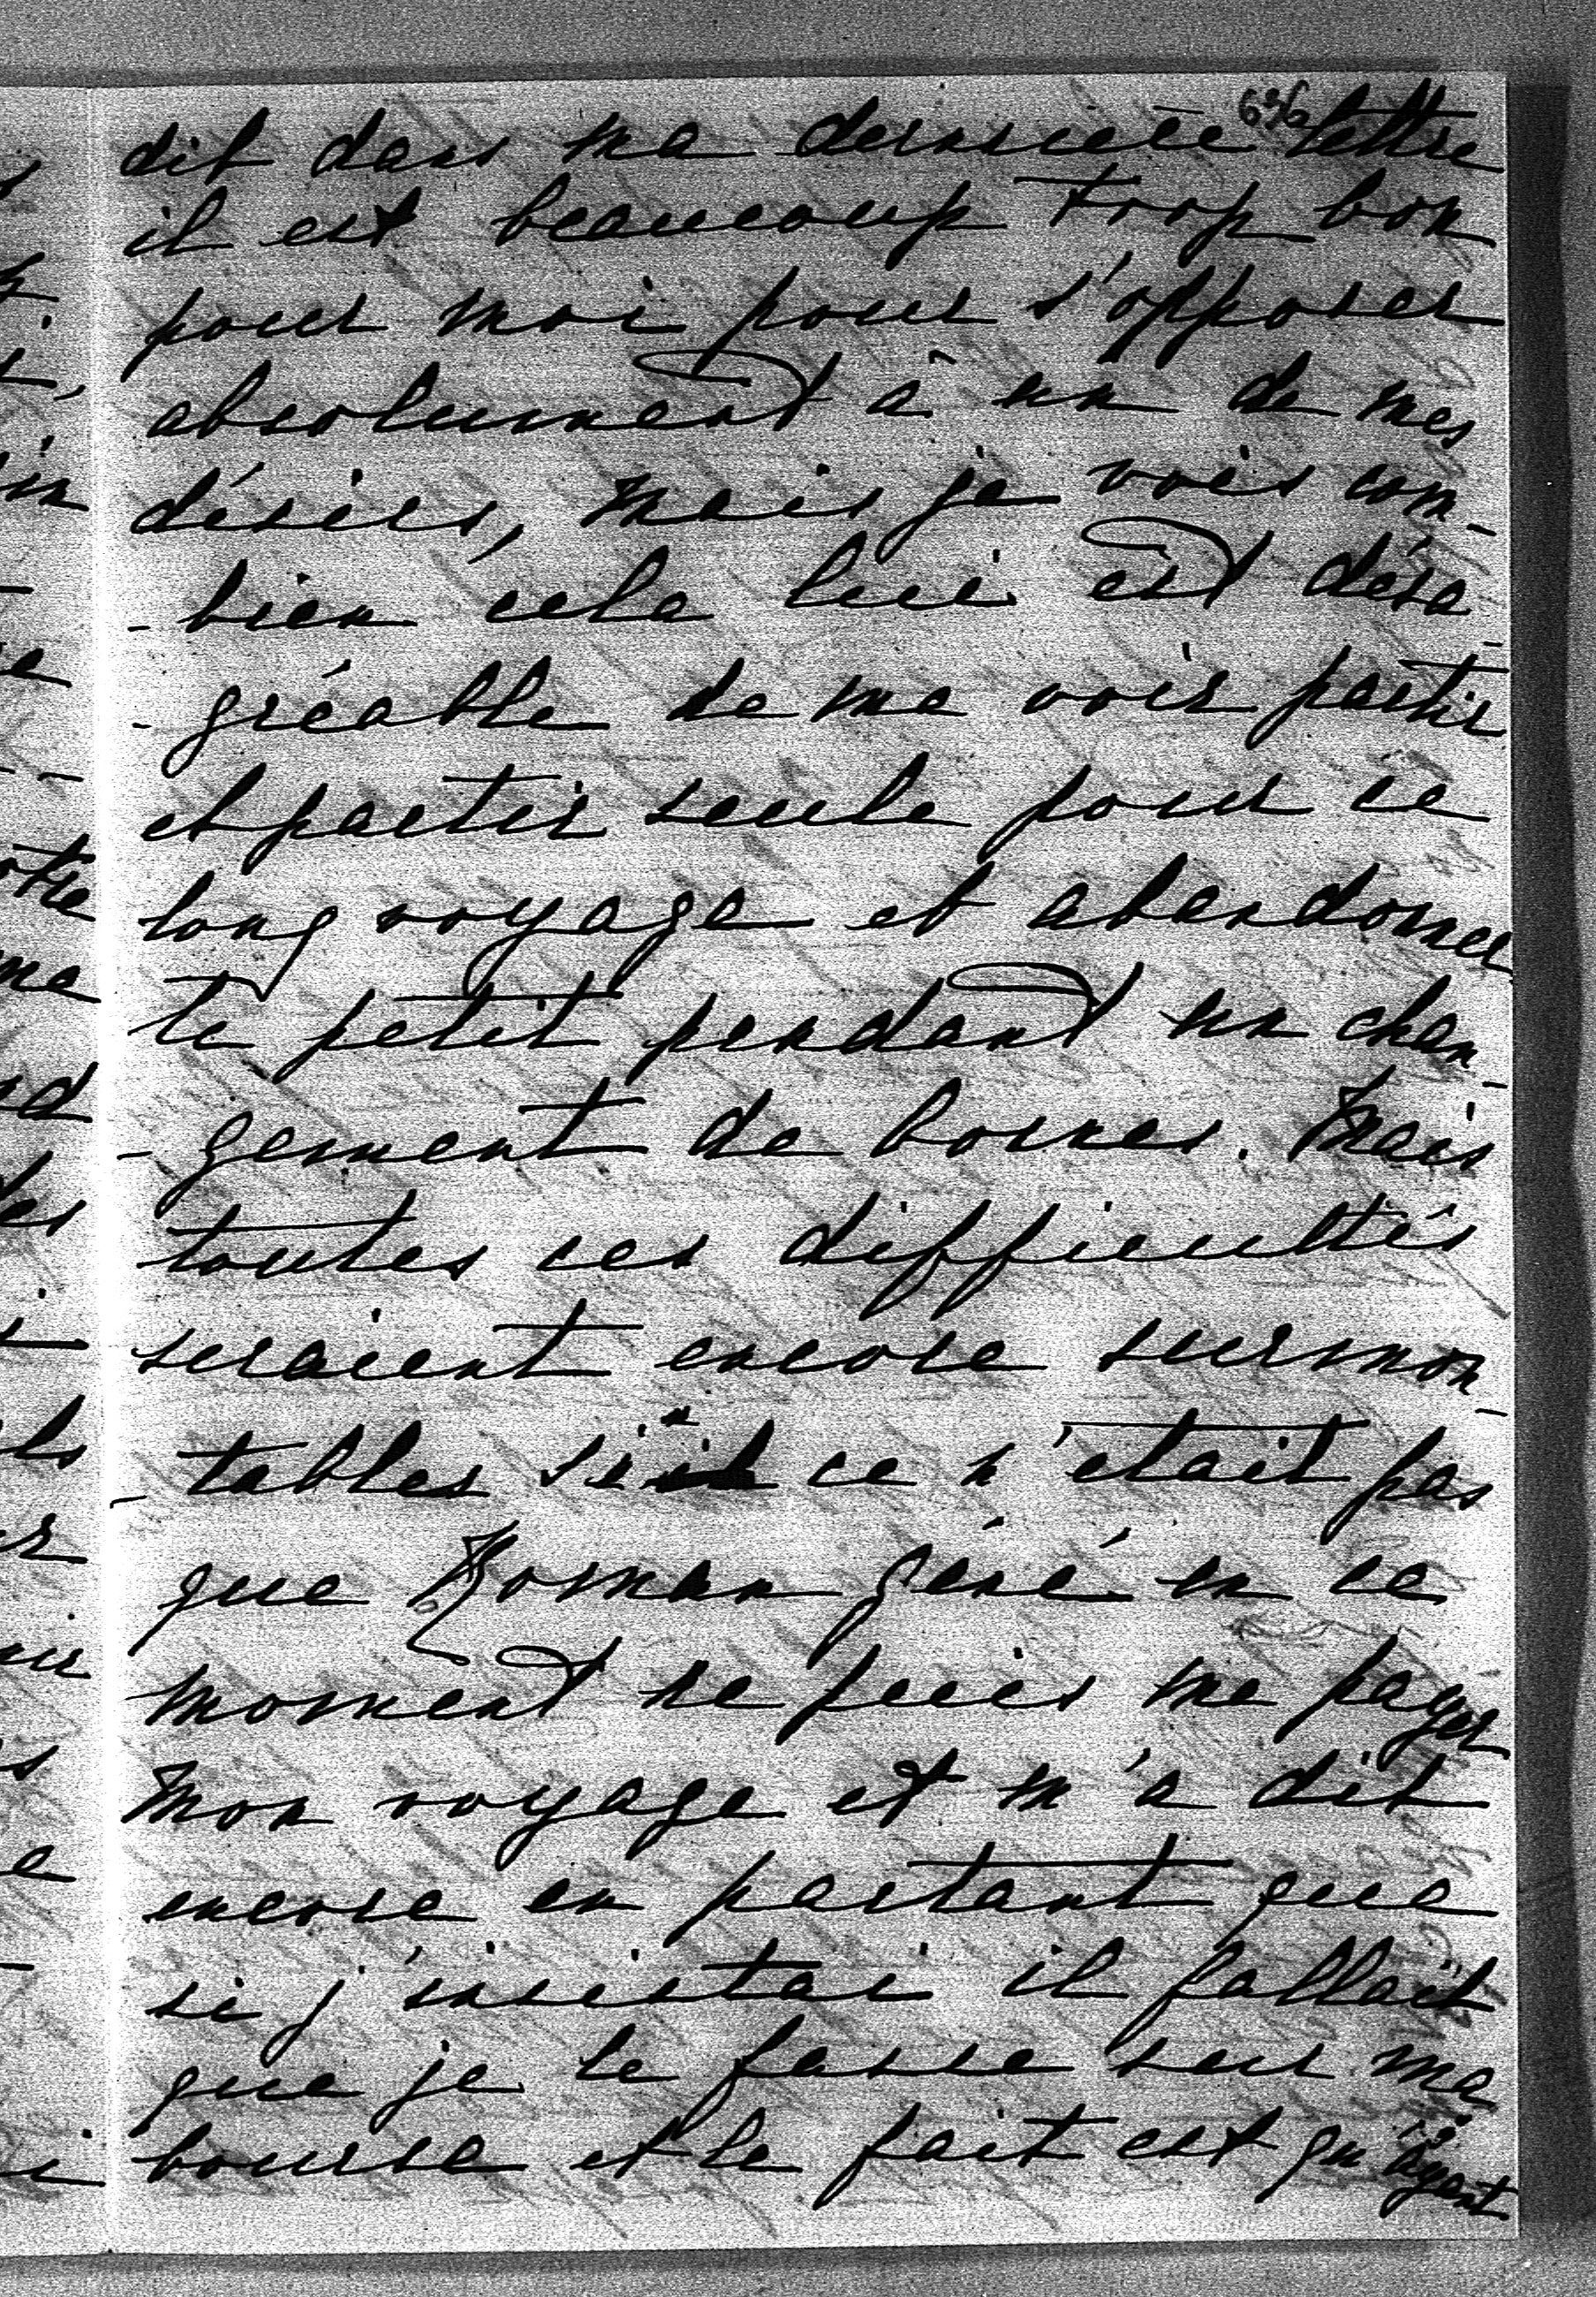 636
dit dans ma derniere lettre
il est beaucoup trop bon
pour moi pour s'opposer
absolument à un de mes
désirs, mais je vois com-
-bien cela lui est désa-
-gréable de me voir partir
et partir seule pour ce
long voyage et abandonner
le petit pendant un chan-
-gement de bonnes. Mais
toutes ces difficultés
seraient encore surmon-
-tables si ce n'était pas
que Roman gené en ce
moment ne puis me payer
mon voyage et m'a dit
encore en partant que
si j'insistai il fallait
que je le fasse sur ma
bourse et le fait est qu'ayant